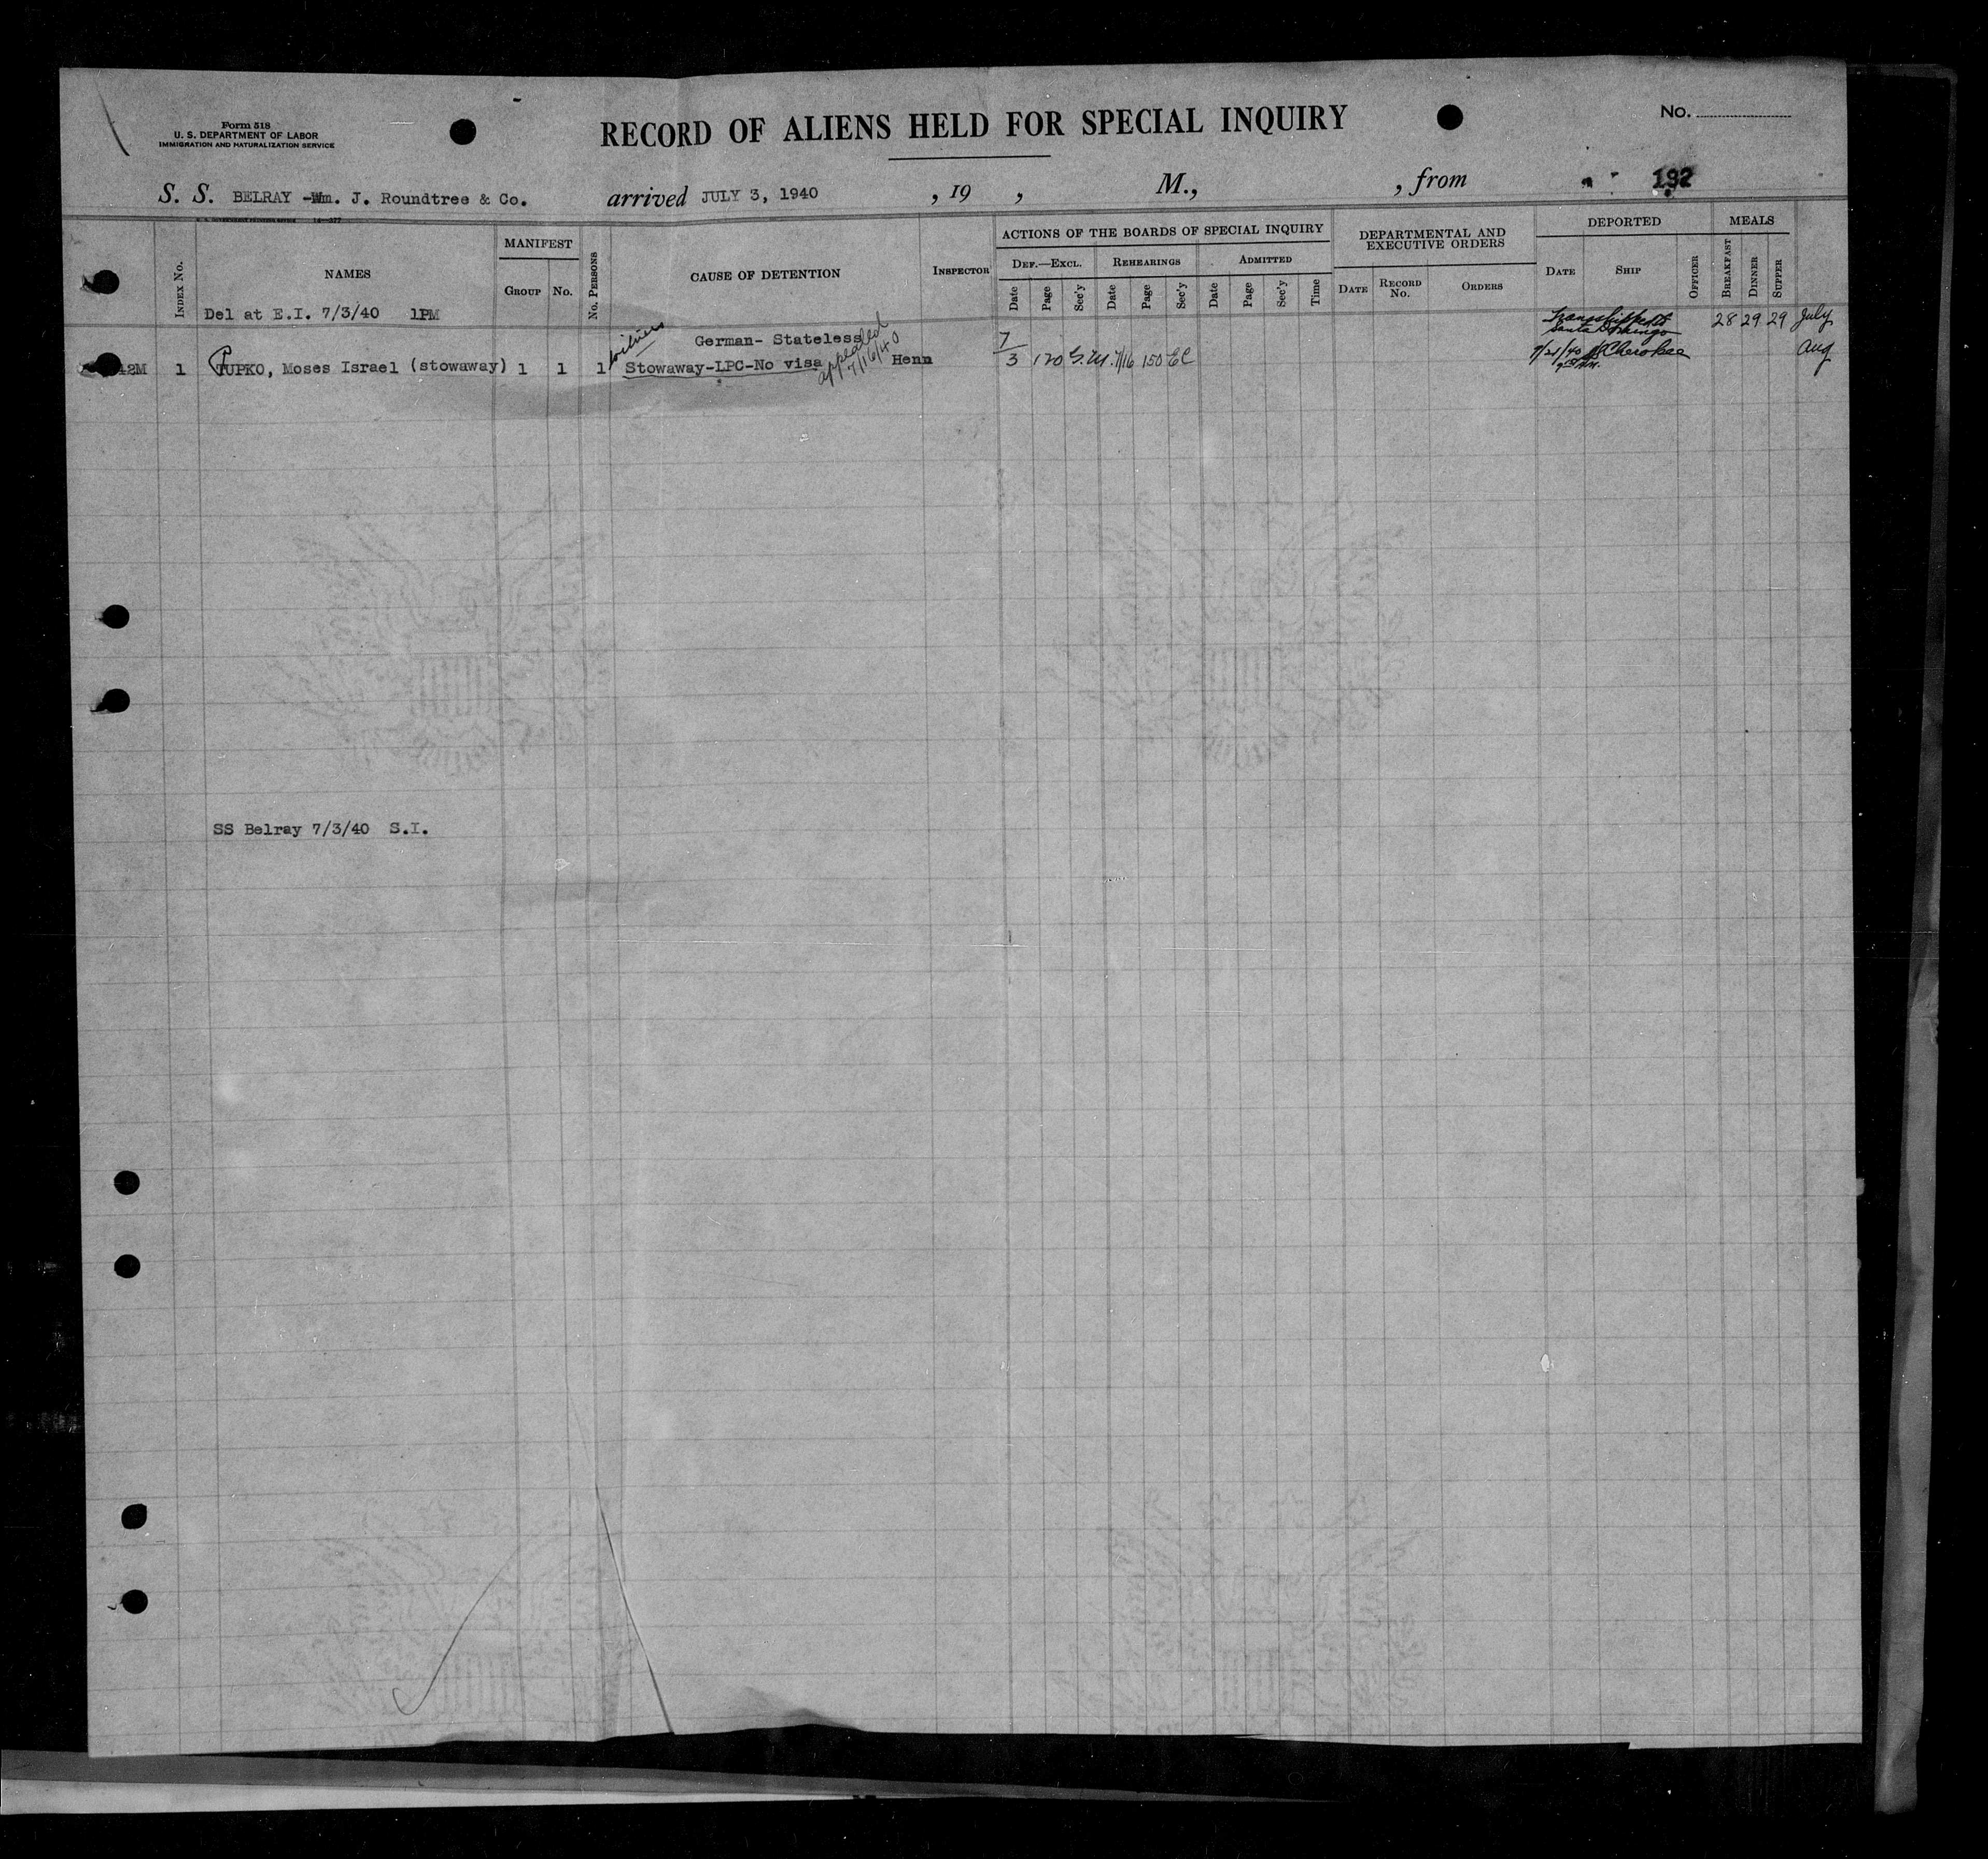 Form 518
U. S. DEPARTMENT OF LABOR
IMMIGRATION AND NATURALIZATION SERVICE
RECORD OF ALIENS HELD FOR SPECIAL INQUIRY
No.
S. S. BELRAY -Wm. J. Roundtree & Co. arrived JULY 3, 1940 , 19 , M., , from 192
INDEX No.
NAMES
MANIFEST
GROUP No.
No. PERSONS
CAUSE OF DETENTION
INSPECTOR
ACTIONS OF THE BOARDS OF SPECIAL INQUIRY
DEF.—EXCL. REHEARINGS ADMITTED
Date Page Sec'y Date Page Sec'y Date Page Sec'y Time
DEPARTMENTAL AND
EXECUTIVE ORDERS
DATE RECORD No. ORDERS
DEPORTED
DATE SHIP OFFICER
MEALS
BREAKFAST DINNER SUPPER
Del at E.I. 7/3/40 1PM
Transshipped to 28 29 29 July
Santo Domingo
German- Stateless 7
appealed
7/16/40
42M 1 TUPKO, Moses Israel (stowaway) 1 1 1 Stowaway-LPC-No visa Henn 3 120 G.M. 7/16 150 EC Cherokee Aug
SS Belray 7/3/40 S.I.